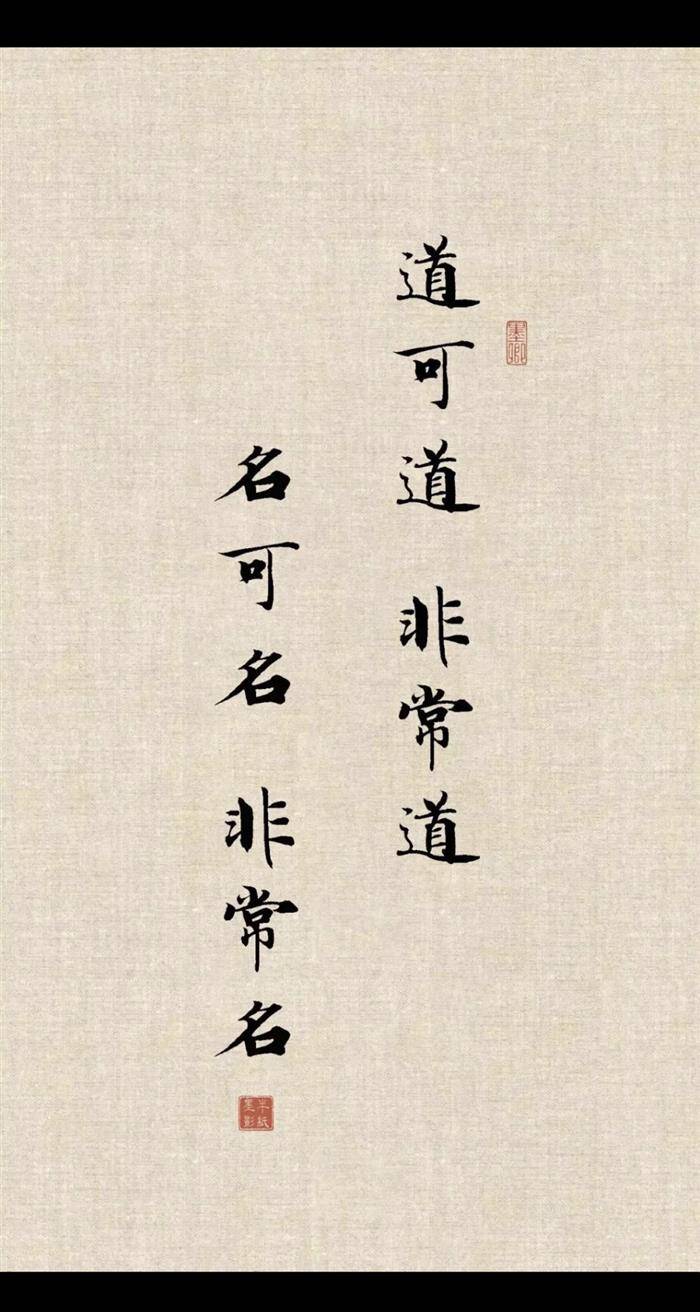 道可道 非常道
墨卿
名可名 非常名
半紙墨影